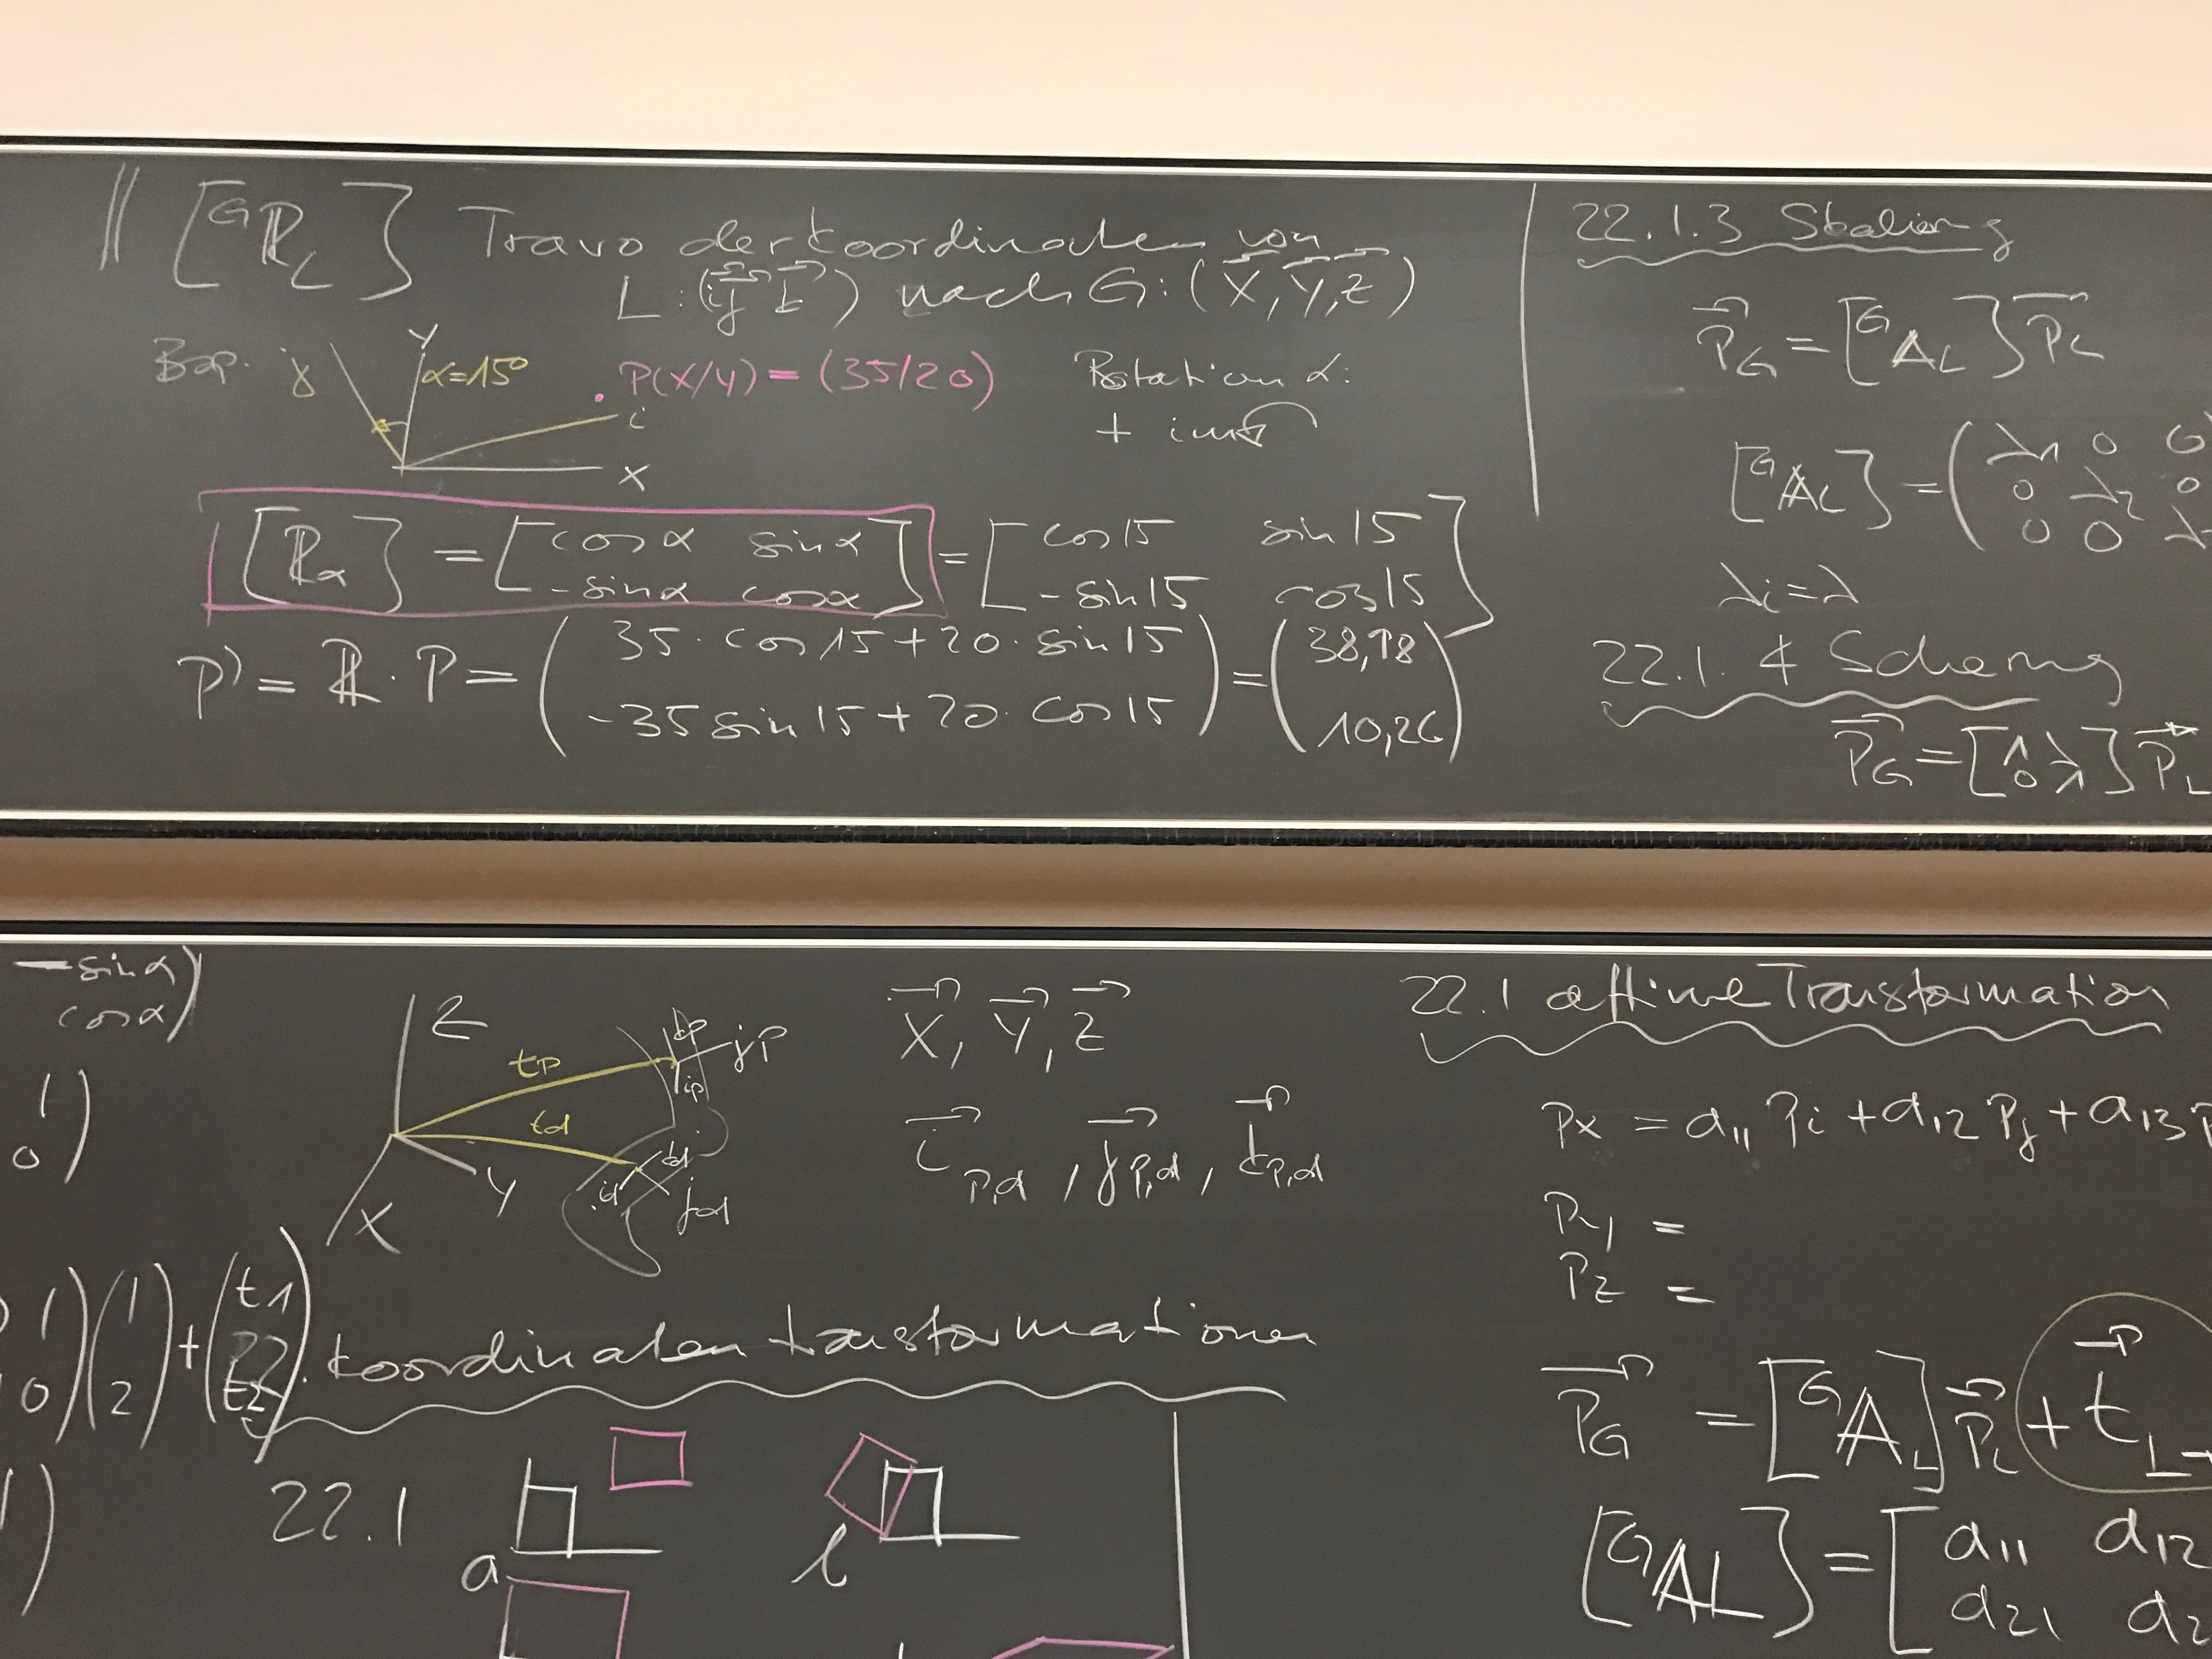 [ᴳℝ_L] Travo der Koordinaten von
L: (i⃗ j⃗ k⃗) nach G: (X⃗, Y⃗, Z⃗)
Bsp. j Y α=15° i X
P(X/Y) = (35/20)
Rotation α:
+ im
[ℝ_α] = [cosα sinα] = [cos15 sin15]
[-sinα cosα] [-sin15 cos15]
P' = ℝ · P = (35 · cos15 + 20 · sin15) = (38,98)
(-35 sin15 + 20 · cos15) (10,26)
22.1.3 Skalierung
P⃗_G = [ᴳ𝔸_L] P⃗_L
[ᴳ𝔸_L] = (λ1 0 0
0 λ2 0
0 0 λ
λi = λ
22.1.4 Scherung
P⃗_G = [1 λ] P⃗_L
[0 1]
-sinα)
cosα)
1)
0)
1)(1) + (t1)
0)(2) (t2)
Z tp kp jp ip
td kd id jd
Y
X
X⃗, Y⃗, Z⃗
i⃗_p,d , j⃗_p,d , k⃗_p,d
Koordinatentransformationen
22.1
a
b
22.1 affine Transformation
Px = a11 Pi + a12 Pj + a13 P
Py =
Pz =
P⃗_G = [ᴳ𝔸_L] P⃗_L + t⃗_L→
[ᴳ𝔸L] = [a11 a12
a21 a2